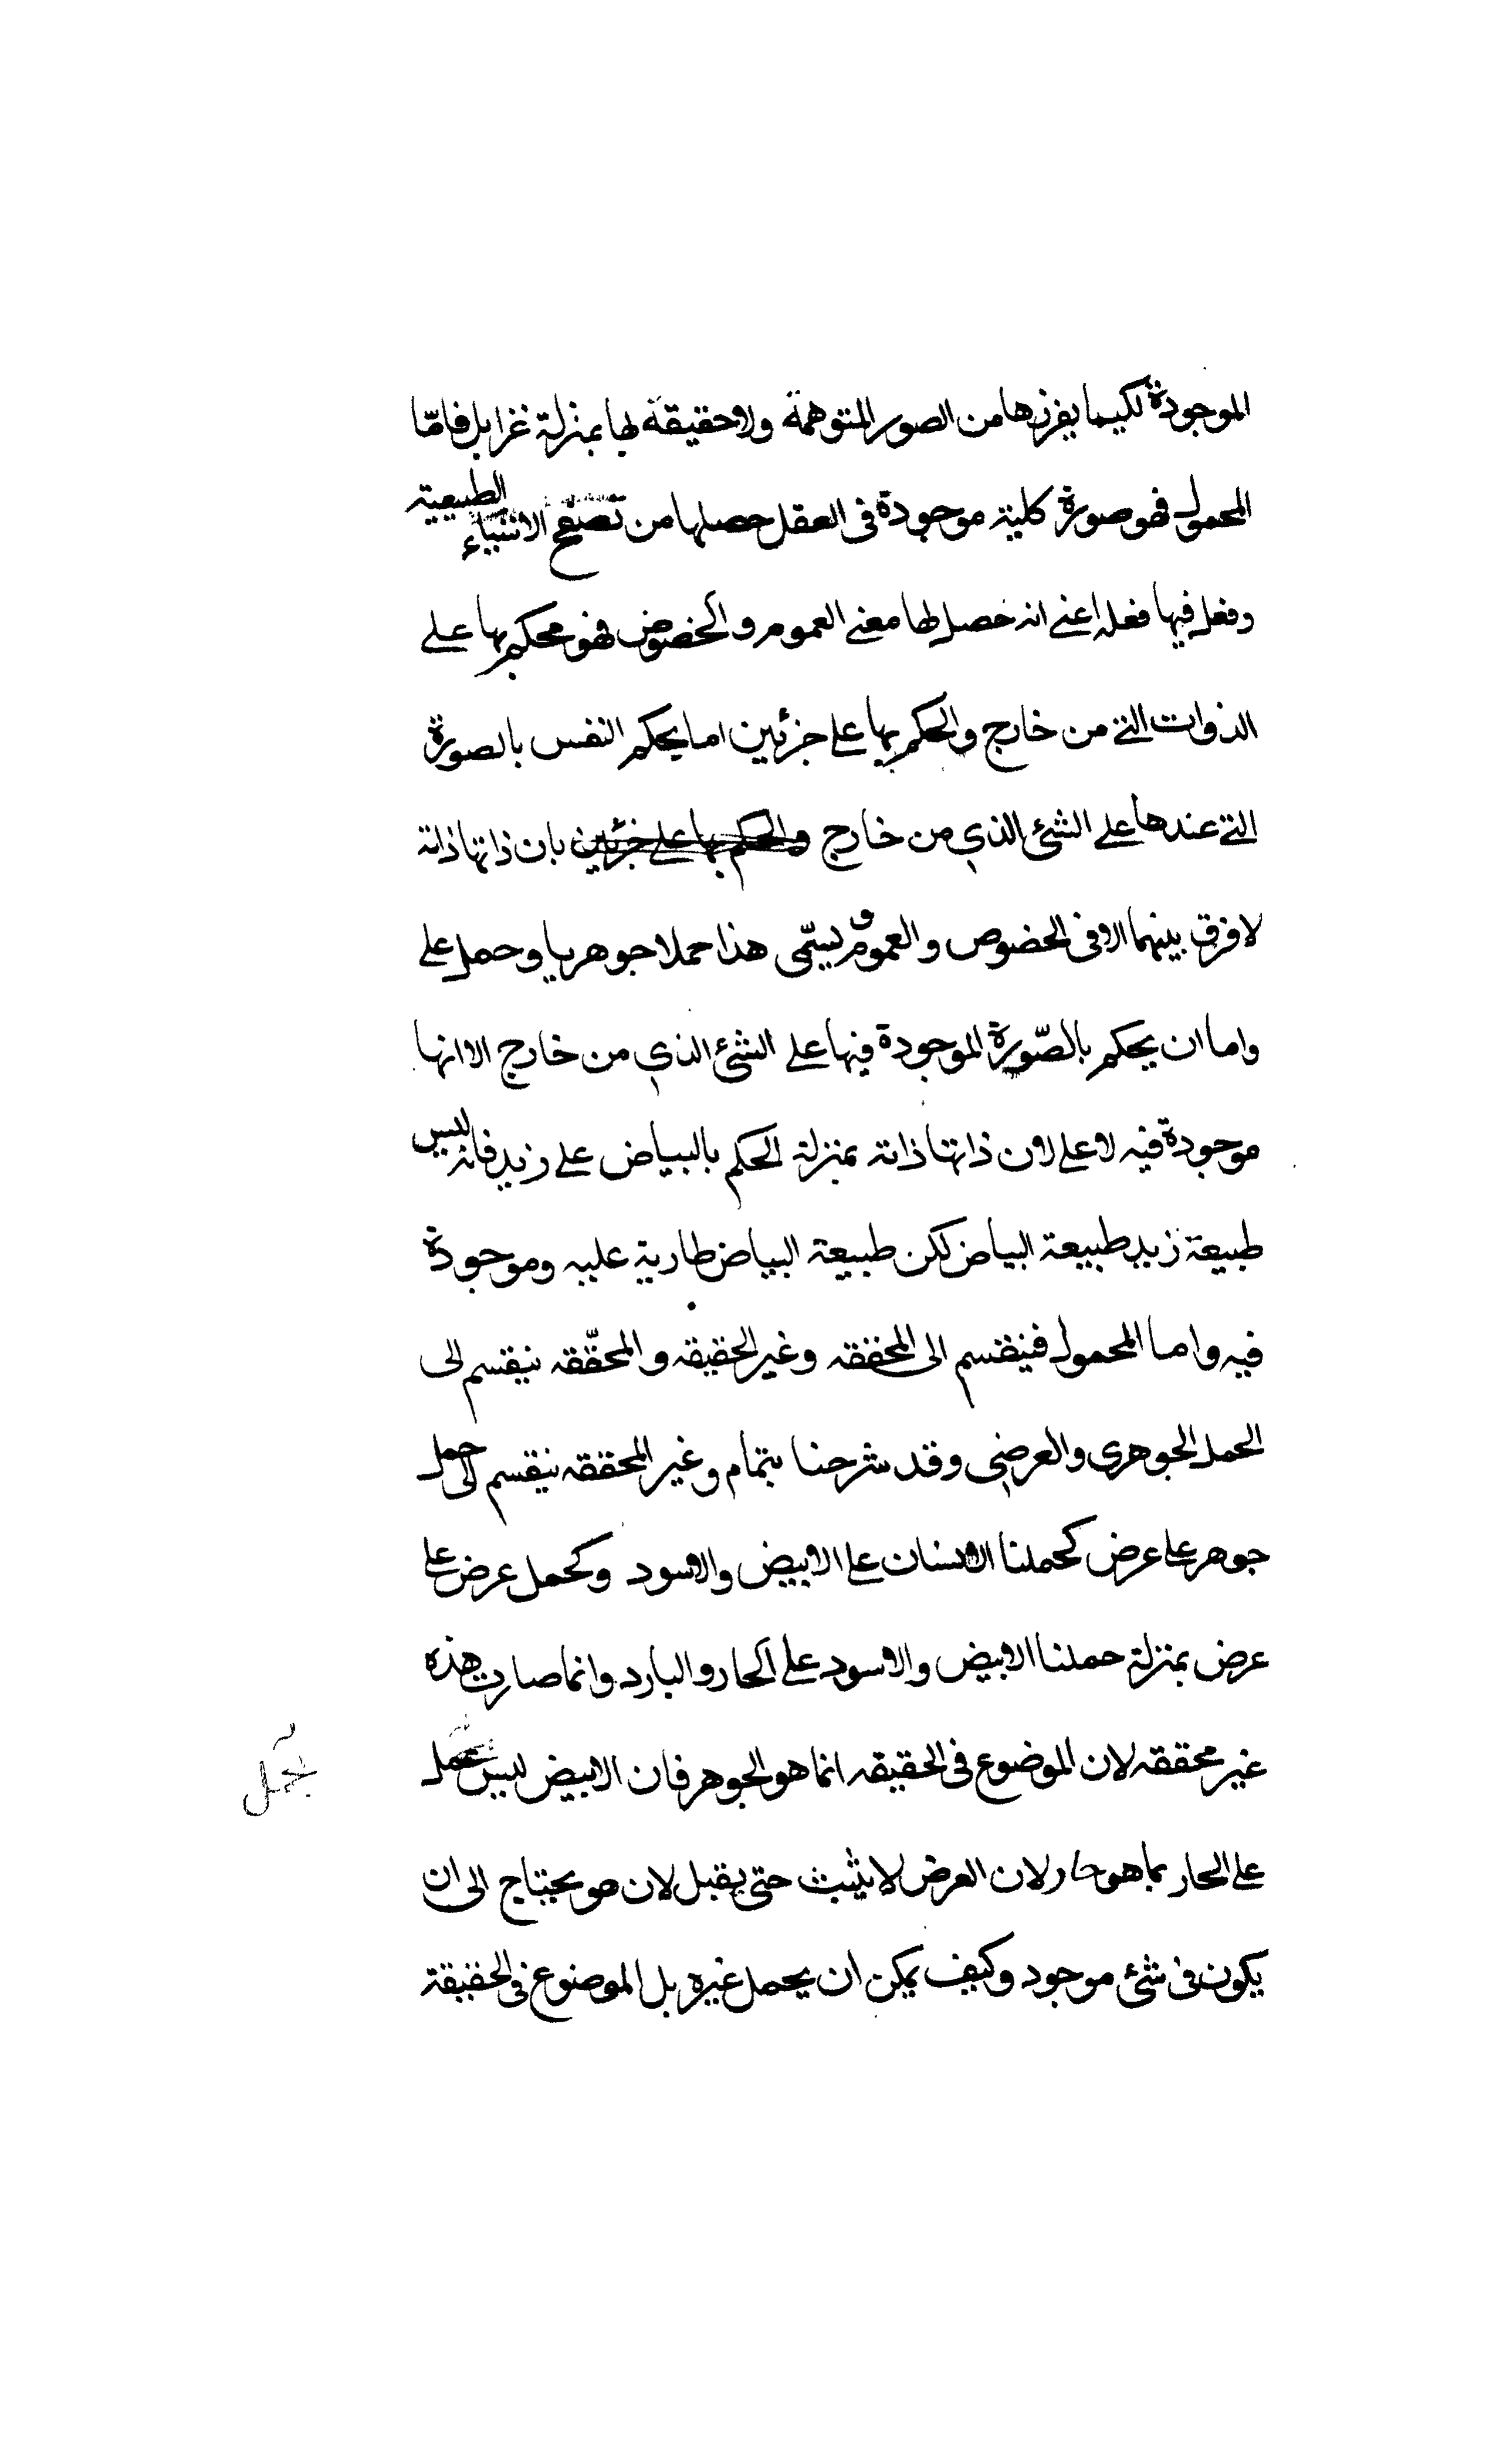 الموجودة لكيما يفرزها من الصور المتوهمة ولا حقيقة لها بمنزلة غزايل فامّا
المحمول فهو صورة كلية موجودة فى العقل حصلها من تصفح الاشياء الطبيعية
وفعل فيها فعله اعنے انه حصل لها معنے العموم والخصوص فهو محكم بها علے
الذوات التے من خارج والحكم بها علے جزئين اما يحكم النفس بالصورة
التے عندها علے الشئ الذي من خارج والحكم بها علے جزئين بان ذاتها ذاته
لا فرق بينهما الا فى الخصوص والعموم و يسمّى هذا حملا جوهريا وحمل على
واما ان يحكم بالصّورة الموجودة فيها علے الشئ الذي من خارج الا انها
موجودة فيه لا علے لان ذاتها ذاته بمنزلة الحكم بالبياض علے زيد فانه ليس
طبيعة زيد طبيعة البياض لكن طبيعة البياض طارية عليه وموجودة
فيه واما المحمول فينقسم الى المحققه وغير الحقيقه والمحقّقه ينقسم الى
الحمل الجوهرى والعرضي وقد شرحنا بتمام وغير المحققه ينقسم الى حمل
جوهر علے عرض كحملنا الانسان علے الابيض والاسود وكحمل عرض علے
عرض بمنزلة حملنا الابيض والاسود علے الحار والبارد وانما صارت هذه
غير محققه لان الموضوع فى الحقيقه انما هو الجوهر فان الابيض ليس يحمل
يحمل
علے الحار بما هو حار لان العرض لا يثبت حتى يقبل لان هو يحتاج الى ان
يكون فى شئ موجود وكيف يمكن ان يحمل غيره بل الموضوع فى الحقيقة